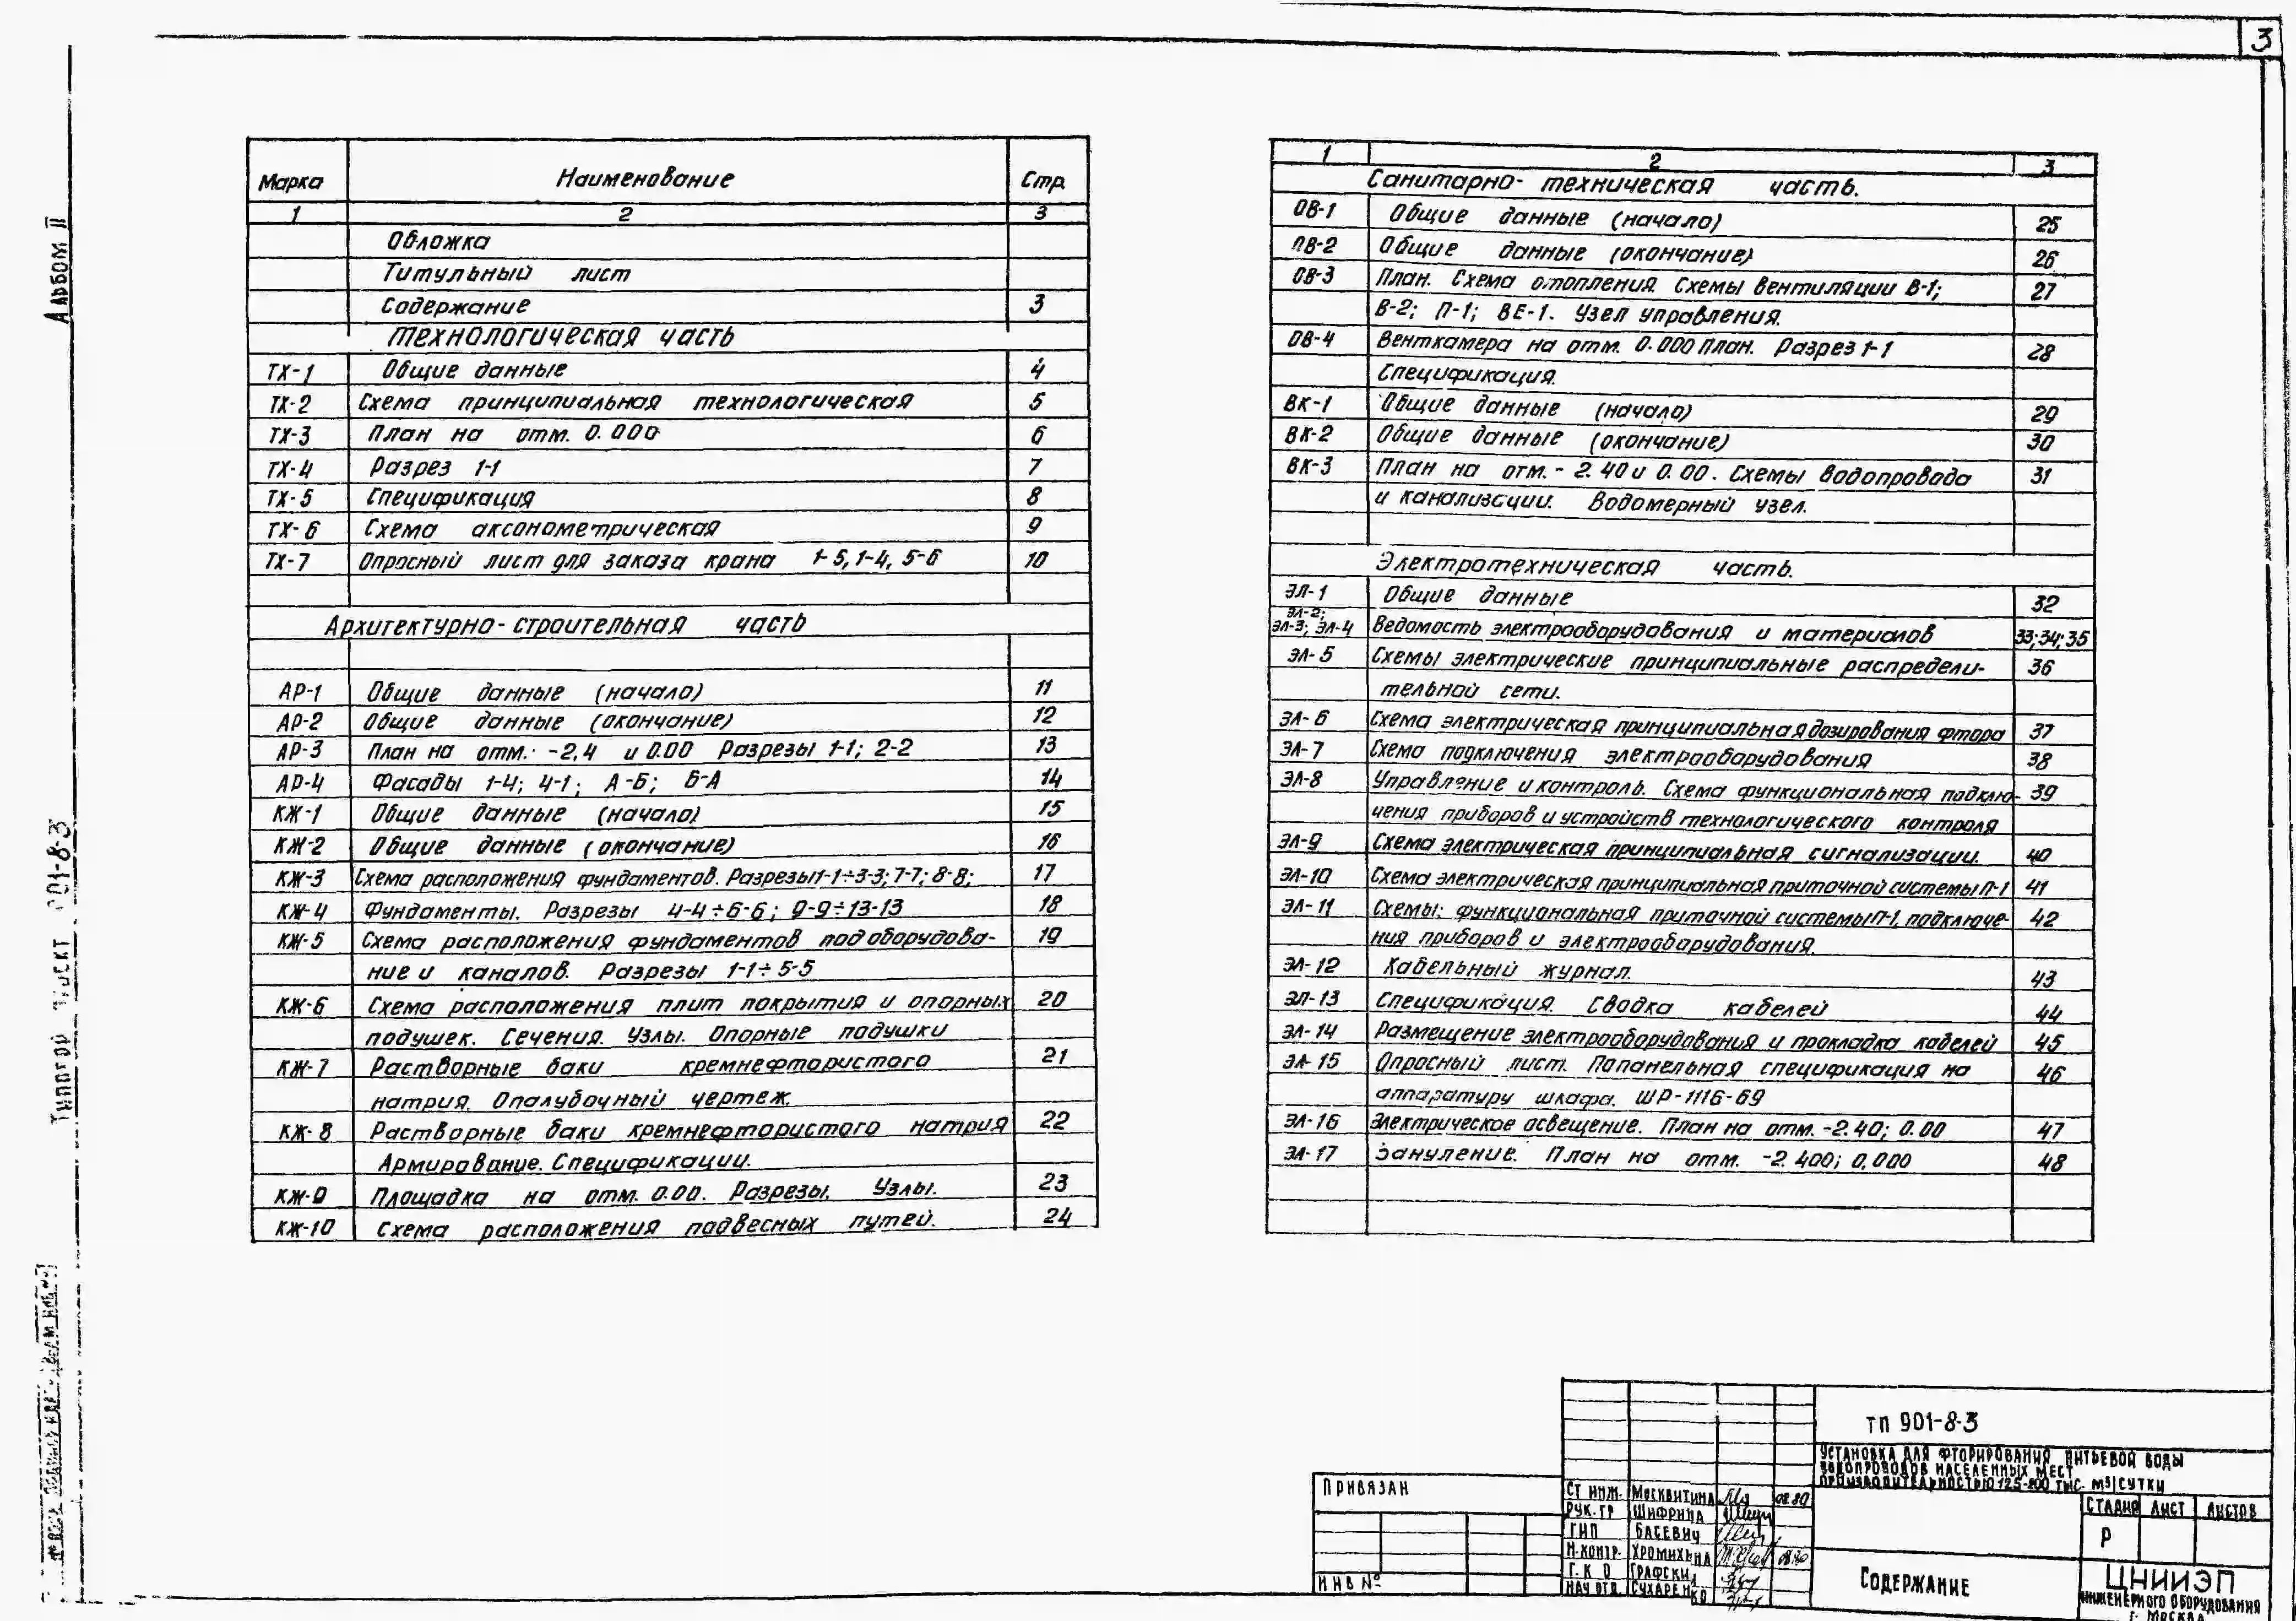 3
Альбом II
Типовой проект 901-8-3
Марка Наименование Стр.
1 2 3
Обложка
Титульный лист
Содержание 3
Технологическая часть
ТХ-1 Общие данные 4
ТХ-2 Схема принципиальная технологическая 5
ТХ-3 План на отм. 0.000 6
ТХ-4 Разрез 1-1 7
ТХ-5 Спецификация 8
ТХ-6 Схема аксонометрическая 9
ТХ-7 Опросный лист для заказа крана 1-5, 1-4, 5-6 10
Архитектурно-строительная часть
АР-1 Общие данные (начало) 11
АР-2 Общие данные (окончание) 12
АР-3 План на отм. -2,4 и 0.00 Разрезы 1-1; 2-2 13
АР-4 Фасады 1-4; 4-1; А-Б; Б-А 14
КЖ-1 Общие данные (начало) 15
КЖ-2 Общие данные (окончание) 16
КЖ-3 Схема расположения фундаментов. Разрезы 1-1÷3-3; 7-7; 8-8; 17
КЖ-4 Фундаменты. Разрезы 4-4÷6-6; 9-9÷13-13 18
КЖ-5 Схема расположения фундаментов под оборудова- 19
ние и каналов. Разрезы 1-1÷5-5
КЖ-6 Схема расположения плит покрытия и опорных 20
подушек. Сечения. Узлы. Опорные подушки
КЖ-7 Растворные баки кремнефтористого 21
натрия. Опалубочный чертеж.
КЖ-8 Растворные баки кремнефтористого натрия 22
Армирование. Спецификации.
КЖ-9 Площадка на отм. 0.00. Разрезы. Узлы. 23
КЖ-10 Схема расположения подвесных путей. 24
1 2 3
Санитарно-техническая часть.
ОВ-1 Общие данные (начало) 25
ОВ-2 Общие данные (окончание) 26
ОВ-3 План. Схема отопления. Схемы вентиляции В-1; 27
В-2; П-1; ВЕ-1. Узел управления.
ОВ-4 Венткамера на отм. 0.000 план. Разрез 1-1 28
Спецификация.
ВК-1 Общие данные (начало) 29
ВК-2 Общие данные (окончание) 30
ВК-3 План на отм. - 2.40 и 0.00. Схемы водопровода 31
и канализации. Водомерный узел.
Электротехническая часть.
ЭЛ-1 Общие данные 32
ЭЛ-2;
ЭЛ-3; ЭЛ-4 Ведомость электрооборудования и материалов 33; 34; 35
ЭЛ-5 Схемы электрические принципиальные распредели- 36
тельной сети.
ЭЛ-6 Схема электрическая принципиальная дозирования фтора 37
ЭЛ-7 Схема подключения электрооборудования 38
ЭЛ-8 Управление и контроль. Схема функциональная подклю- 39
чения приборов и устройств технологического контроля
ЭЛ-9 Схема электрическая принципиальная сигнализации. 40
ЭЛ-10 Схема электрическая принципиальная приточной системы П-1 41
ЭЛ-11 Схемы: функциональная приточной системы П-1, подключе- 42
ния приборов и электрооборудования.
ЭЛ-12 Кабельный журнал. 43
ЭЛ-13 Спецификация. Сводка кабелей 44
ЭЛ-14 Размещение электрооборудования и прокладка кабелей 45
ЭЛ-15 Опросный лист. Попанельная спецификация на 46
аппаратуру шкафа. ШР-1116-69
ЭЛ-16 Электрическое освещение. План на отм. -2.40; 0.00 47
ЭЛ-17 Зануление. План на отм. -2.400; 0,000 48
Привязан
Инв №
ТП 901-8-3
Установка для фторирования питьевой воды
водопроводов населенных мест
производительностью 12,5-800 тыс. м3/сутки
Ст инж. Москвитина 08.80
Рук. гр Шифрина
ГИП Басевич
Н. контр. Хромихина 08.80
Г. К О Графский
Нач отд. Сухаренко
Стадия Лист Листов
Р
Содержание
ЦНИИЭП
инженерного оборудования
г. Москва